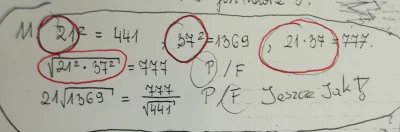 11. 21² = 441 , 37² = 1369 , 21·37 = 777.
√21²·37² = 777 P / F
21√1369 = 777/√441 P / F Jeszcze Jak